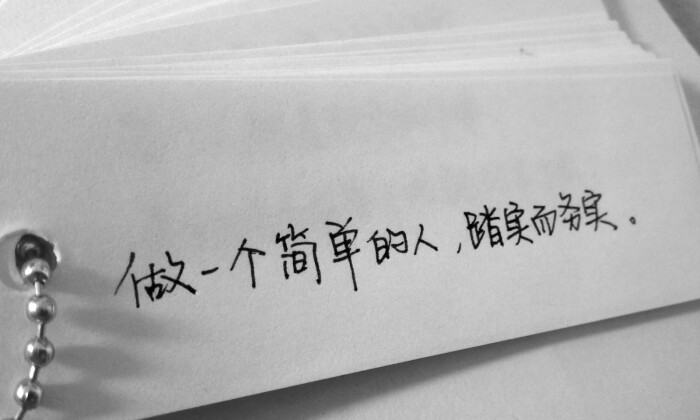 做一个简单的人，踏实而务实。